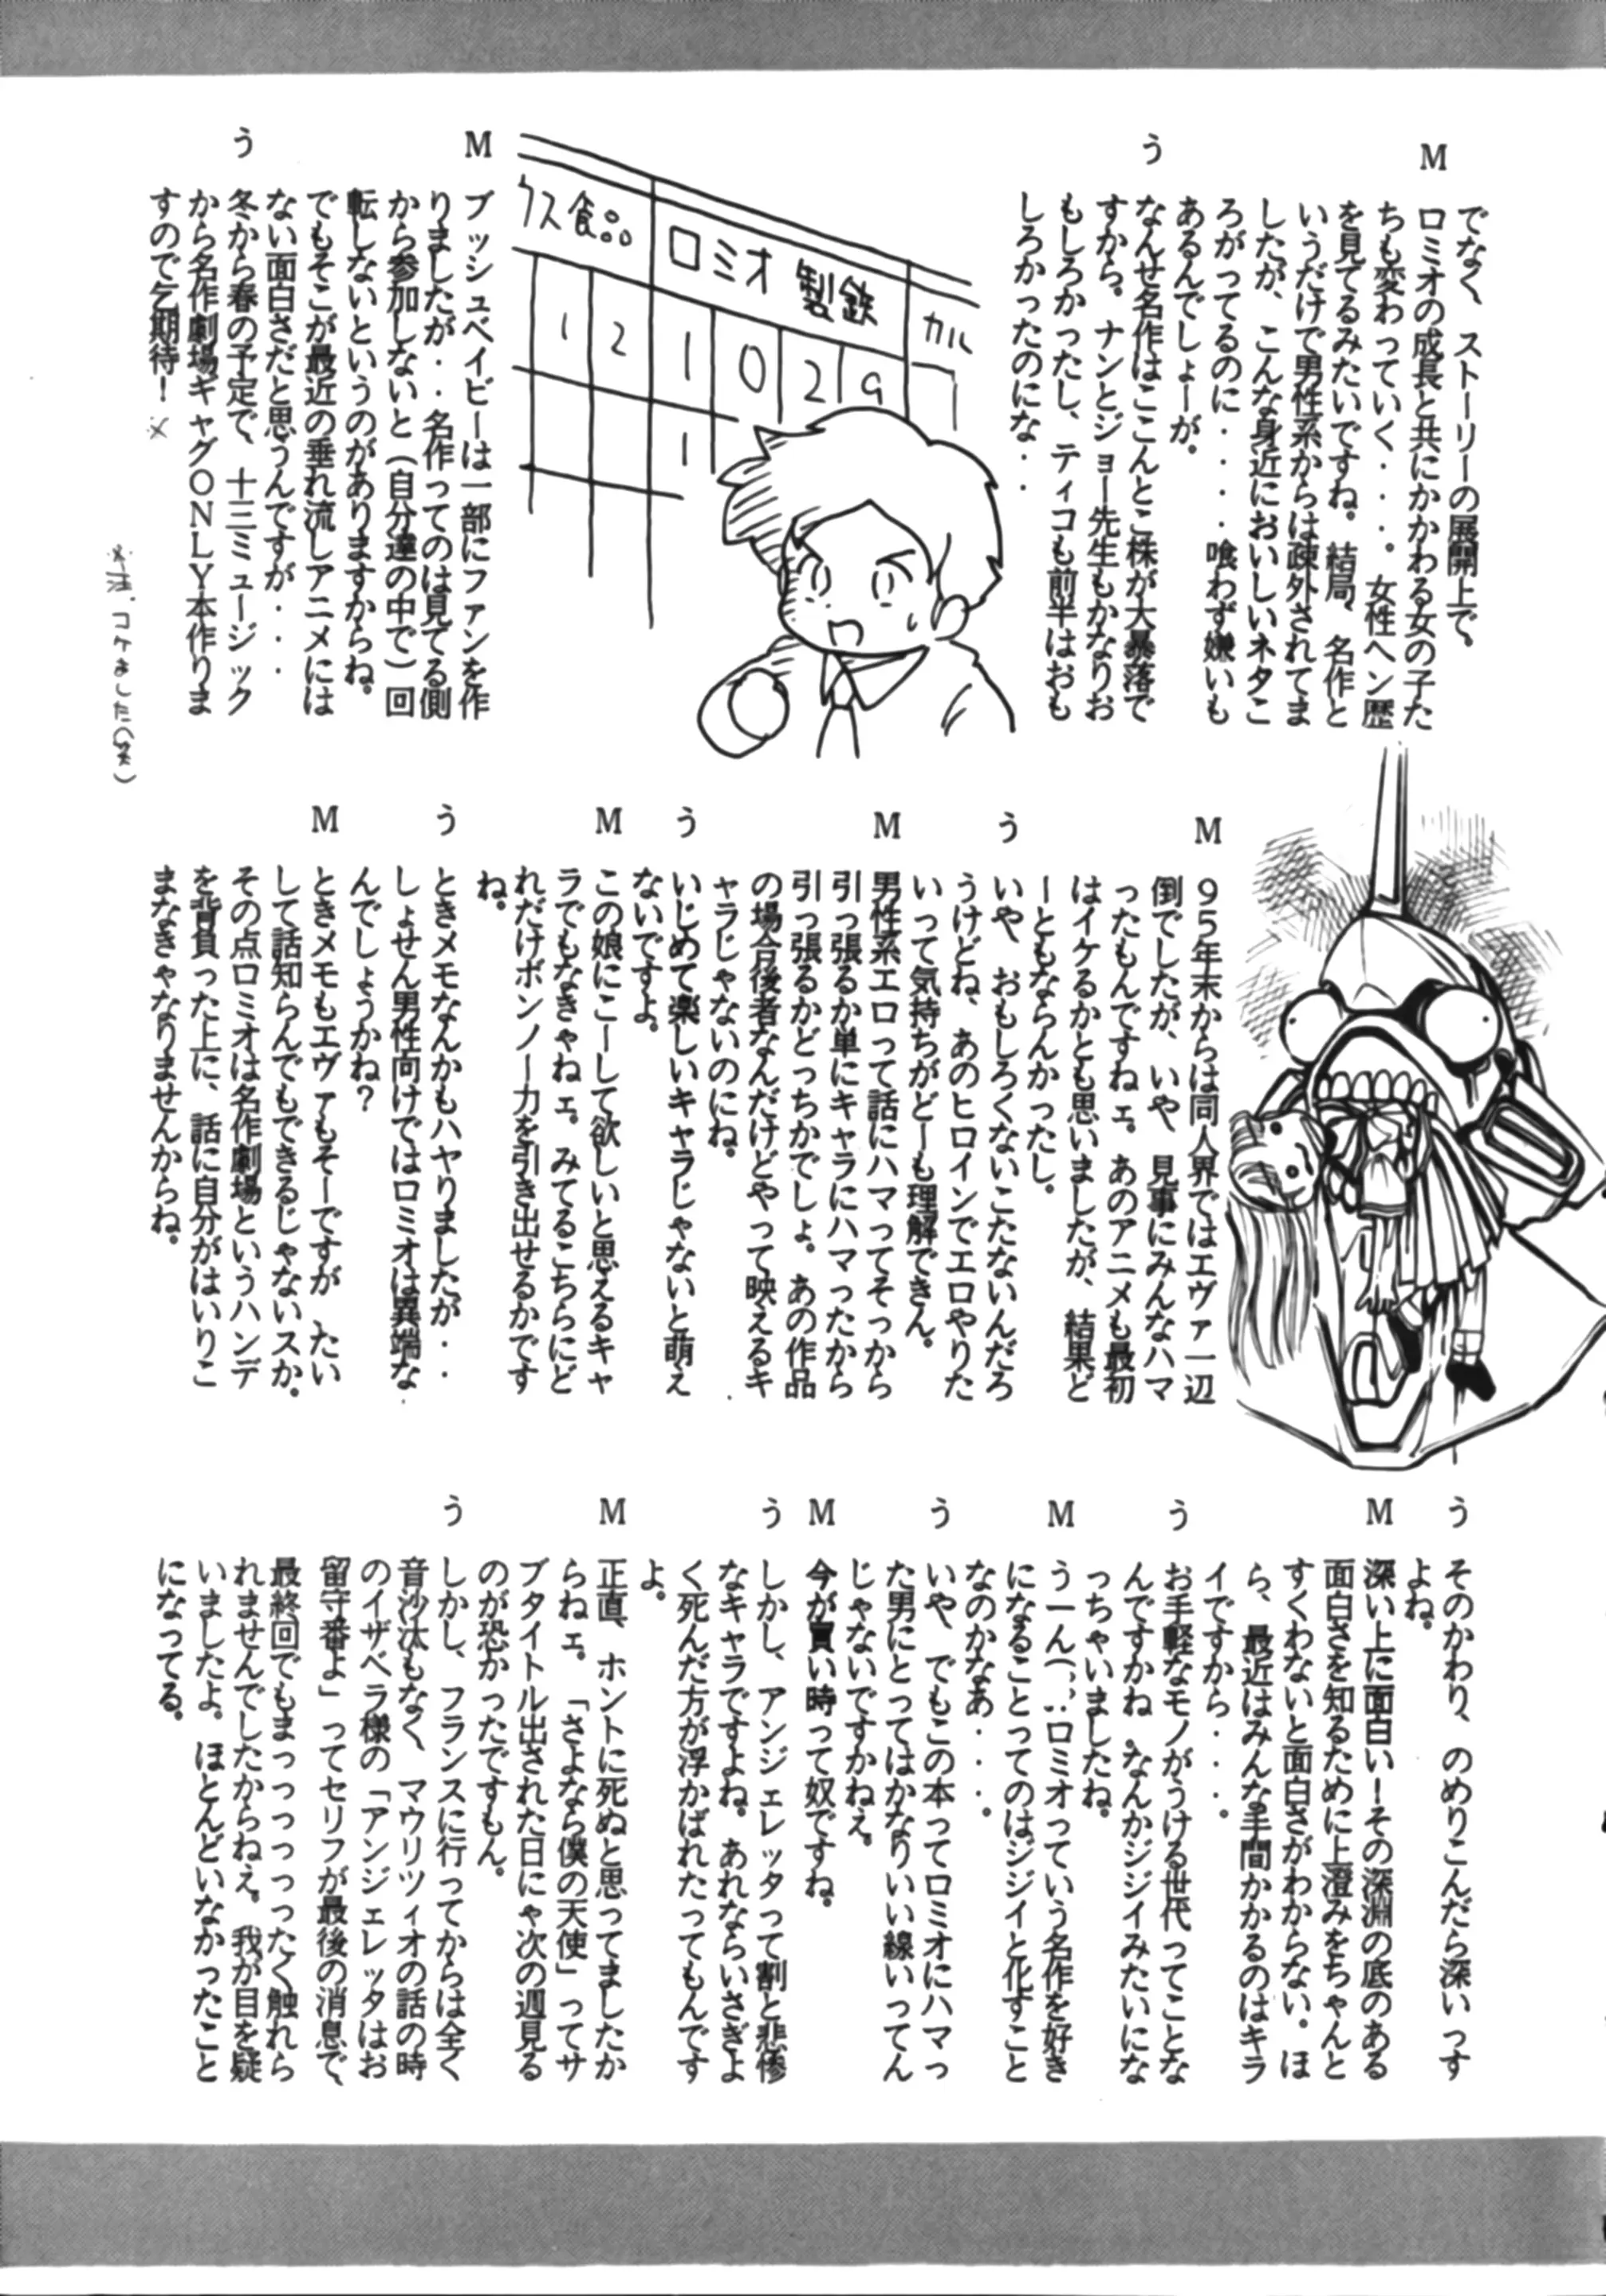 M
でなく、ストーリーの展開上で、
ロミオの成長と共にかかわる女の子た
ちも変わっていく・・・。女性ヘン歴
を見てるみたいですね。結局、名作と
いうだけで男性系からは疎外されてま
したが、こんな身近においしいネタこ
ろがってるのに・・・・喰わず嫌いも
あるんでしょーが。
う
なんせ名作はここんとこ株が大暴落で
すから。ナンとジョー先生もかなりお
もしろかったし、ティコも前半はおも
しろかったのにな・・
クス食品
ロミオ製鉄
カル
1 2
1 0 2 9
1
1
M
ブッシュベイビーは一部にファンを作
りましたが・・名作ってのは見てる側
から参加しないと(自分達の中で)回
転しないというのがありますからね。
でもそこが最近の垂れ流しアニメには
ない面白さだと思うんですが・・・
う
冬から春の予定で、十三ミュージック
から名作劇場ギャグONLY本作りま
すので乞期待!※
※注.コケました(笑)
M
95年末からは同人界ではエヴァ一辺
倒でしたが、いや、見事にみんなハマ
ったもんですねェ。あのアニメも最初
はイケるかとも思いましたが、結果ど
ーともならんかったし。
う
いや、おもしろくないこたないんだろ
うけどね、あのヒロインでエロやりた
いって気持ちがどーも理解できん。
M
男性系エロって話にハマってそっから
引っ張るか単にキャラにハマったから
引っ張るかどっちかでしょ。あの作品
の場合後者なんだけどやって映えるキ
ャラじゃないのにね。
う
いじめて楽しいキャラじゃないと萌え
ないですよ。
M
この娘にこーして欲しいと思えるキャ
ラでもなきゃねェ。みてるこちらにど
れだけボンノー力を引き出せるかです
ね。
う
ときメモなんかもハヤりましたが・・
しょせん男性向けではロミオは異端な
んでしょうかね?
M
ときメモもエヴァもそーですが、たい
して話知らんでもできるじゃないスか。
その点ロミオは名作劇場というハンデ
を背負った上に、話に自分がはいりこ
まなきゃなりませんからね。
う
そのかわり、のめりこんだら深いっす
よね。
M
深い上に面白い!その深淵の底のある
面白さを知るために上澄みをちゃんと
すくわないと面白さがわからない。ほ
ら、最近はみんな手間かかるのはキラ
イですから・・・。
う
お手軽なモノがうける世代ってことな
んですかね。なんかジジイみたいにな
っちゃいましたね。
M
うーん(;;ロミオっていう名作を好き
になることってのはジジイと化すこと
なのかなあ・・・。
う
いや、でもこの本ってロミオにハマっ
た男にとってはかなりいい線いってん
じゃないですかねえ。
M
今が買い時って奴ですね。
う
しかし、アンジェレッタって割と悲惨
なキャラですよね。あれならいさぎよ
く死んだ方が浮かばれたってもんです
よ。
M
正直、ホントに死ぬと思ってましたか
らねェ。「さよなら僕の天使」ってサ
ブタイトル出された日にゃ次の週見る
のが恐かったですもん。
う
しかし、フランスに行ってからは全く
音沙汰もなく、マウリツィオの話の時
のイザベラ様の「アンジェレッタはお
留守番よ」ってセリフが最後の消息で、
最終回でもまっっっっったく触れら
れませんでしたからねえ。我が目を疑
いましたよ。ほとんどいなかったこと
になってる。